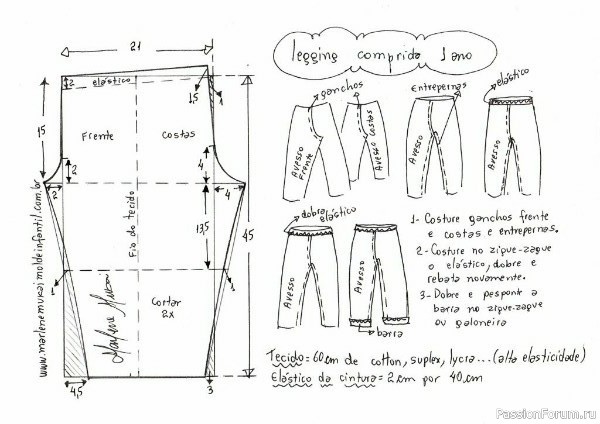 21
legging comprida 1 ano
2
elástico
1,5
1
15
Frente
Costas
2
4
2
4
Fio do tecido
13,5
45
1
1
Cortar
2x
4,5
3
www.marlenemukai.moldeinfantil.com.br
Marlene Mukai
ganchos
Avesso
Frente
Avesso Costas
Entrepernas
Avesso
elástico
Avesso
dobra elástico
Avesso
Avesso
barra
1- Costure ganchos frente
e costas e entrepernas.
2- Costure no zigue-zague
o elástico, dobre e
rebata novamente.
3- Dobre e pesponte a
barra no zigue-zague
ou galoneira
Tecido = 60cm de cotton, suplex, lycra... (alta elasticidade)
Elástico da cintura = 2cm por 40cm
PassionForum.ru